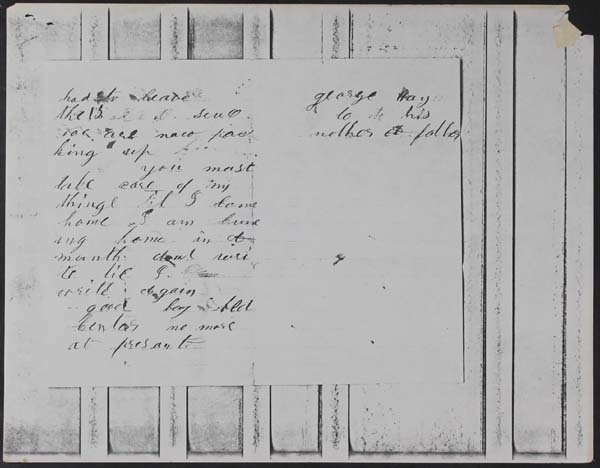 had to leave
now pac
king up
you must
take care of my
things til I come
home I am com
ing home in a
month dont wri
te til I
write again
good boy
no more
at present
george Hay
to his
mother & father